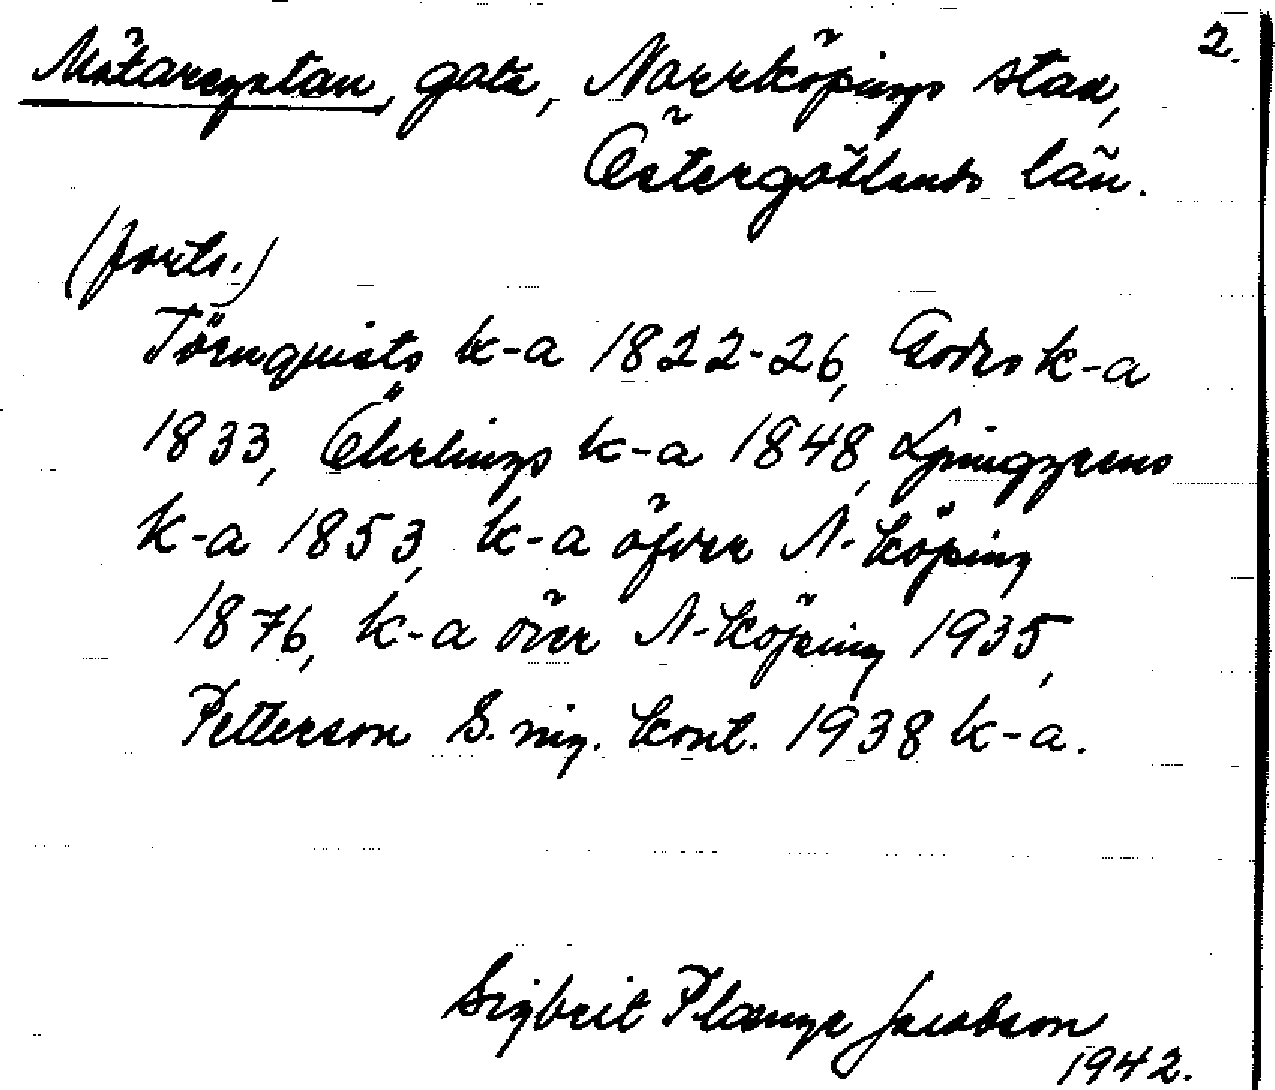 2.
Mätaregatan, gata, Norrköpings stad,
Östergötlands län.
(forts.)
Törnquists k-a 1822-26, Godes k-a
1833, Öhrlings k-a 1848, Ljunggrens
k-a 1853, k-a öfver N-köping
1876, k-a över N-köping 1935,
Petterson S. ing. kont. 1938 k-a.
Sigbrit Plænge Jacobson
1942.